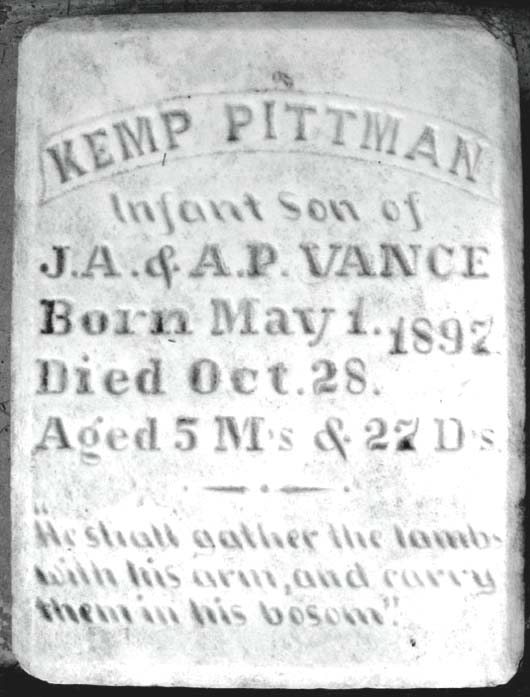 KEMP PITTMAN
Infant Son of
J.A. & A.P. VANCE
Born May 1. 1897
Died Oct. 28.
Aged 5 M's & 27 D's.
"He shall gather the lambs
with his arm, and carry
them in his bosom".